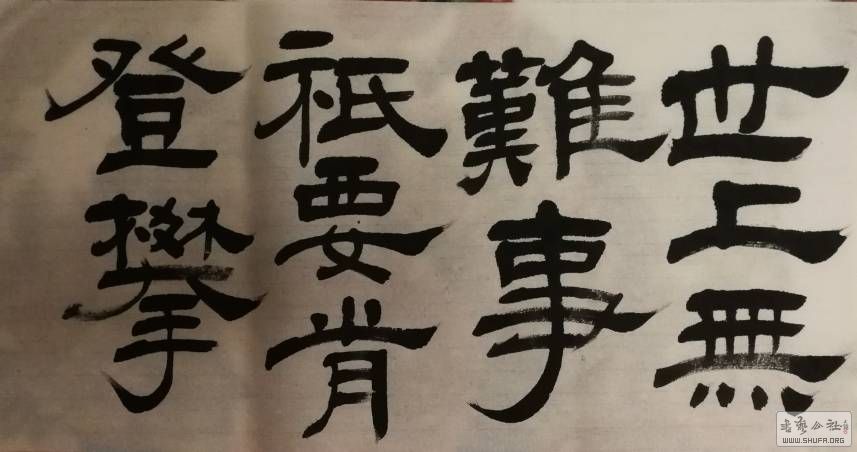 世上無
難事
祗要肯
登攀
書藝公社
WWW.SHUFA.ORG